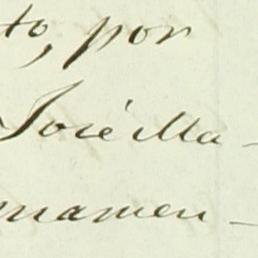 to, por
José Ma-
namen-